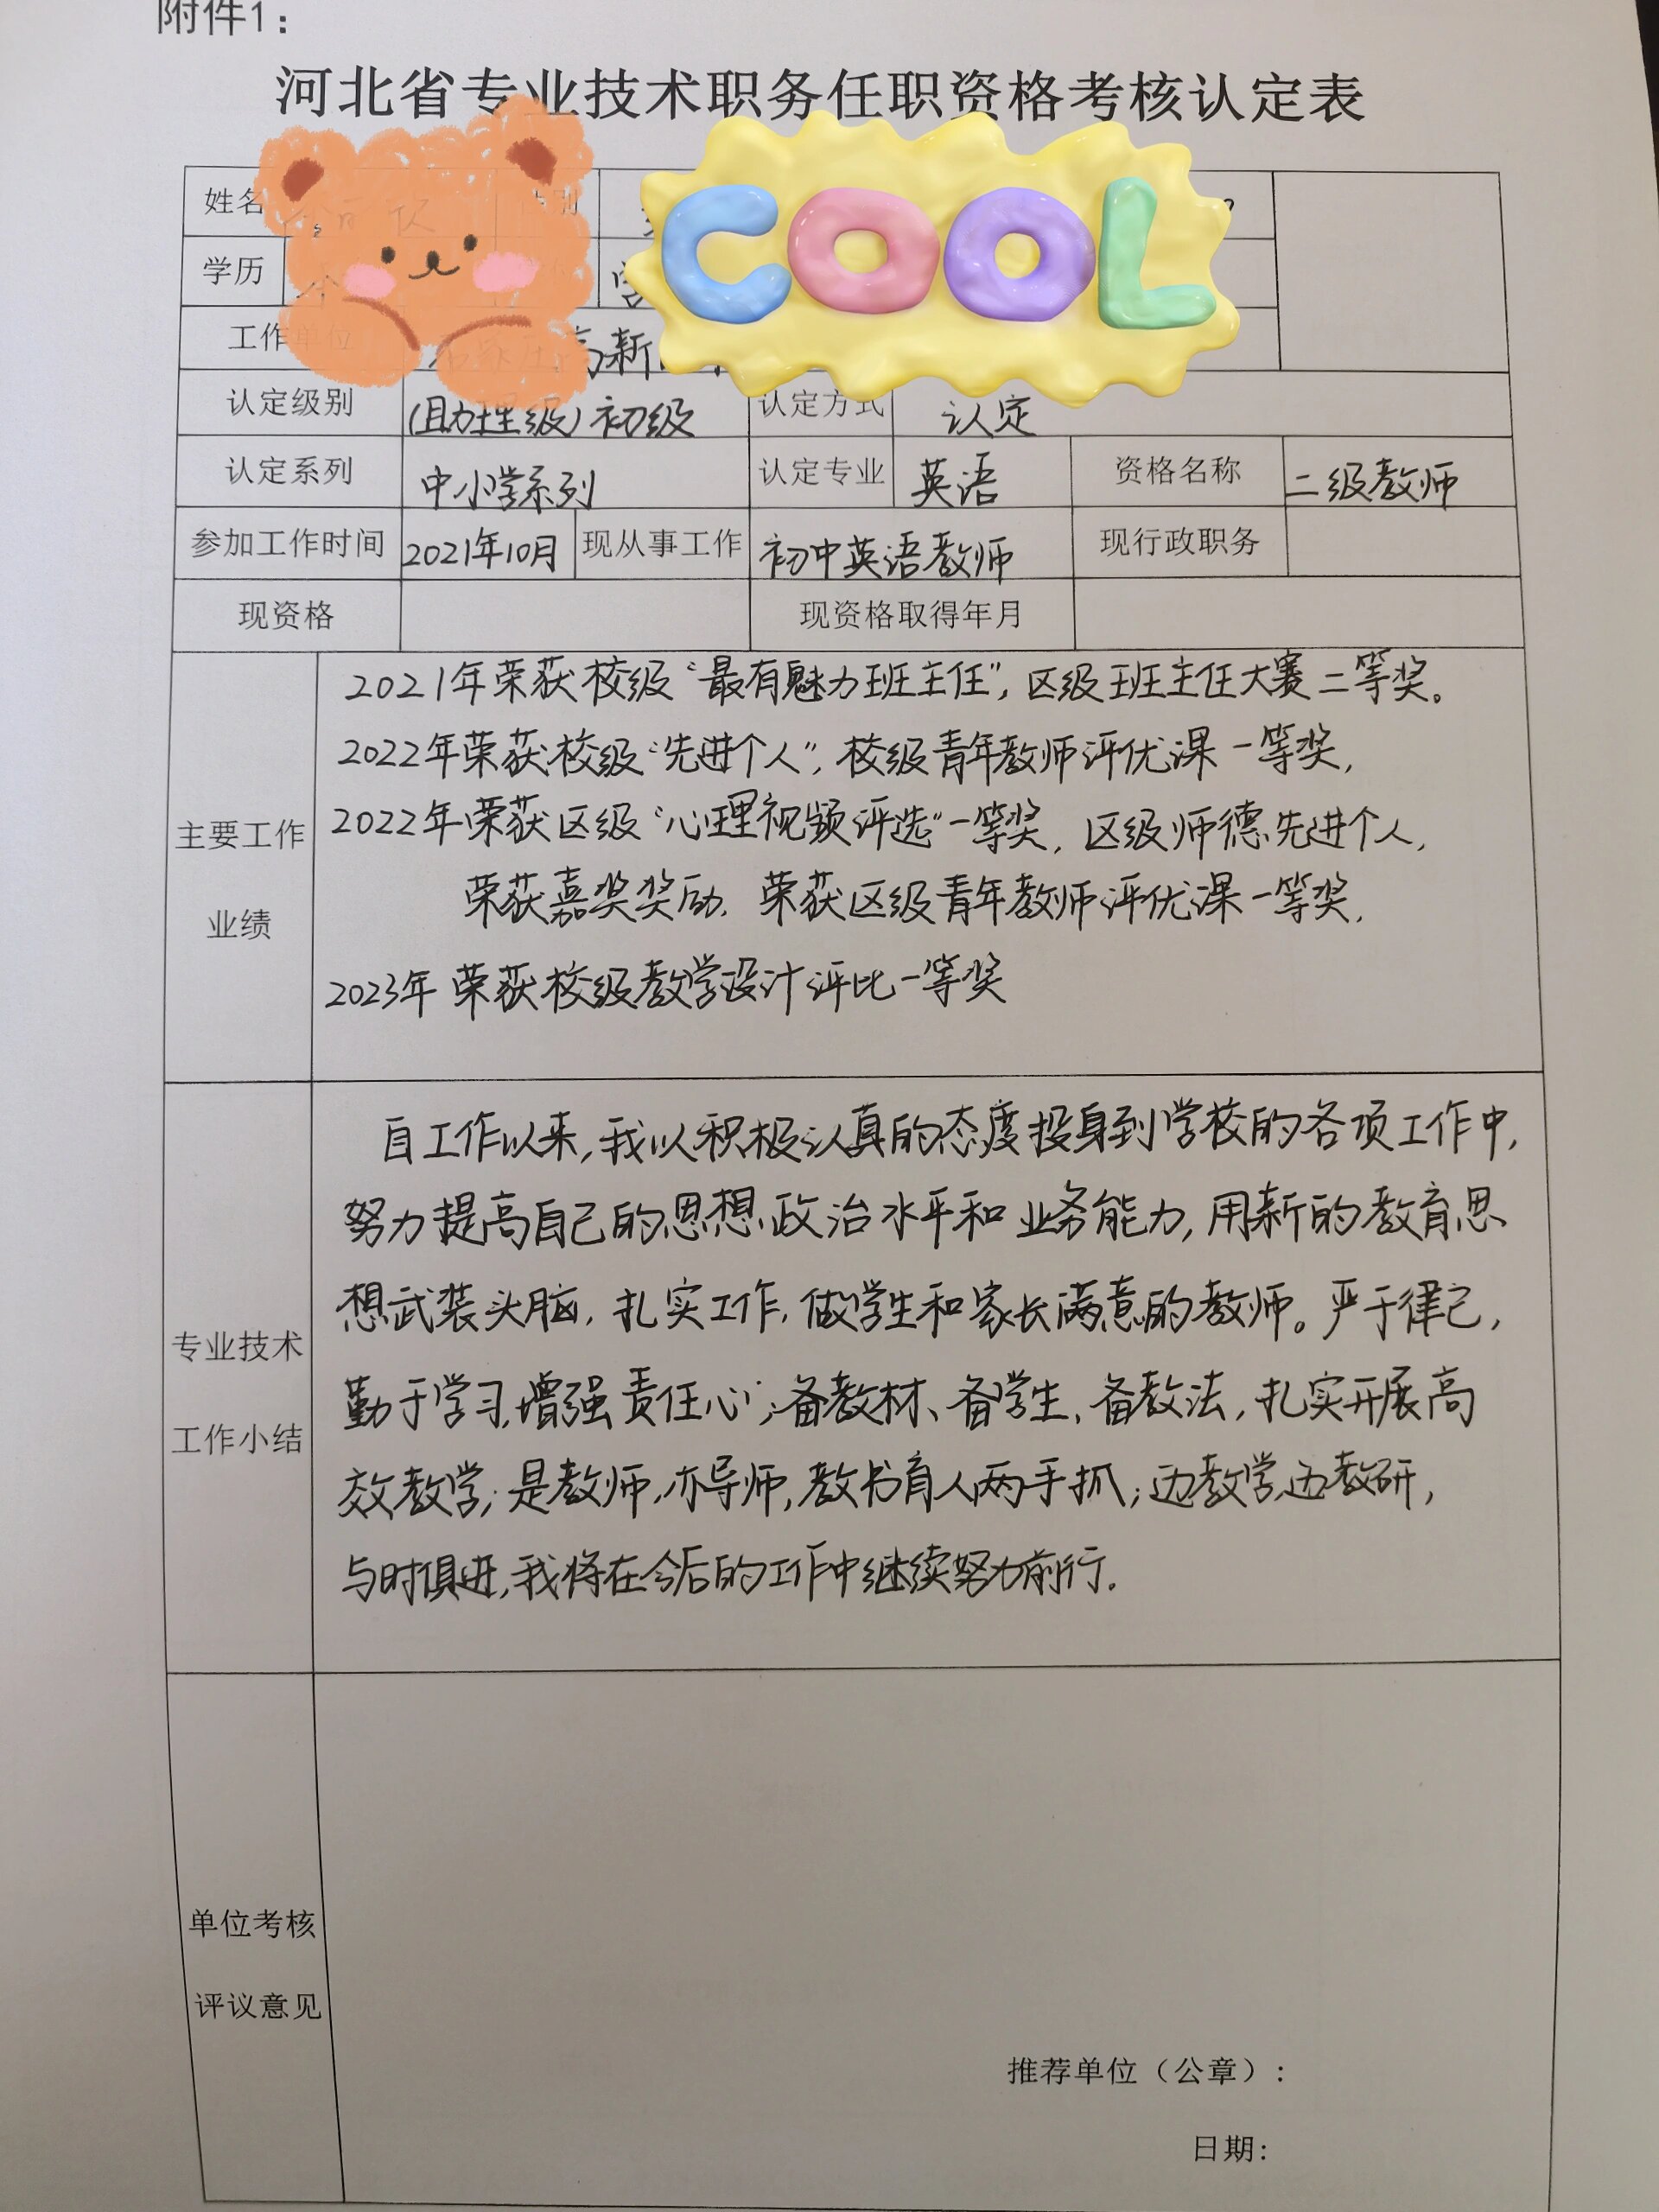 附件1：
河北省专业技术职务任职资格考核认定表
COOL
姓名
学历
工作单位 高新
认定级别 (助理级)初级 认定方式 认定
认定系列 中小学系列 认定专业 英语 资格名称 二级教师
参加工作时间 2021年10月 现从事工作 初中英语教师 现行政职务
现资格 现资格取得年月
主要工作
业绩
2021年荣获校级“最有魅力班主任”，区级班主任大赛二等奖。
2022年荣获校级“先进个人”，校级青年教师评优课一等奖，
2022年荣获区级“心理视频评选”一等奖，区级师德先进个人，
荣获嘉奖奖励，荣获区级青年教师评优课一等奖，
2023年荣获校级教学设计评比一等奖
专业技术
工作小结
自工作以来，我以积极认真的态度投身到学校的各项工作中，
努力提高自己的思想政治水平和业务能力，用新的教育思
想武装头脑，扎实工作，做学生和家长满意的教师。严于律己，
勤于学习，增强责任心；备教材、备学生、备教法，扎实开展高
效教学；是教师，亦导师，教书育人两手抓；边教学，边教研，
与时俱进，我将在今后的工作中继续努力前行。
单位考核
评议意见
推荐单位（公章）：
日期：